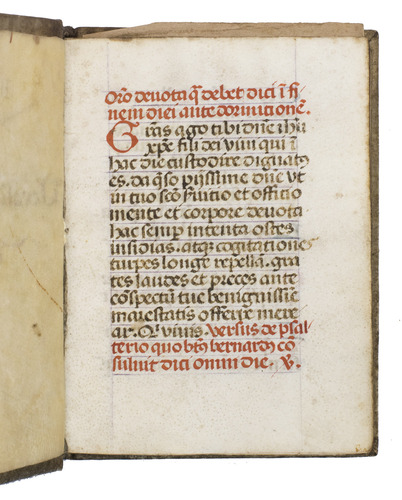 Orō deuota q̄ debet dici ī fi
nem diei ante dormitionē.
Grās ago tibi dn̄e ihū
xp̄e fili dei viui qui ī
hac die custodire dignatꝰ
es. da q̄so pijssime dn̄e vt
in tuo scō seruitio et officio
mente et corpore deuota
hac semp intenta ostes
insidias. atq̄ cogitationes
turpes longe repellā. gra
tes laudes et preces ante
cōspectū tue benignissīe
maiestatis offerre mere
ar. Qī viuis. Versus de psal
terio quo btūs bernardꝰ cō
sulit dici omni die. ℣.